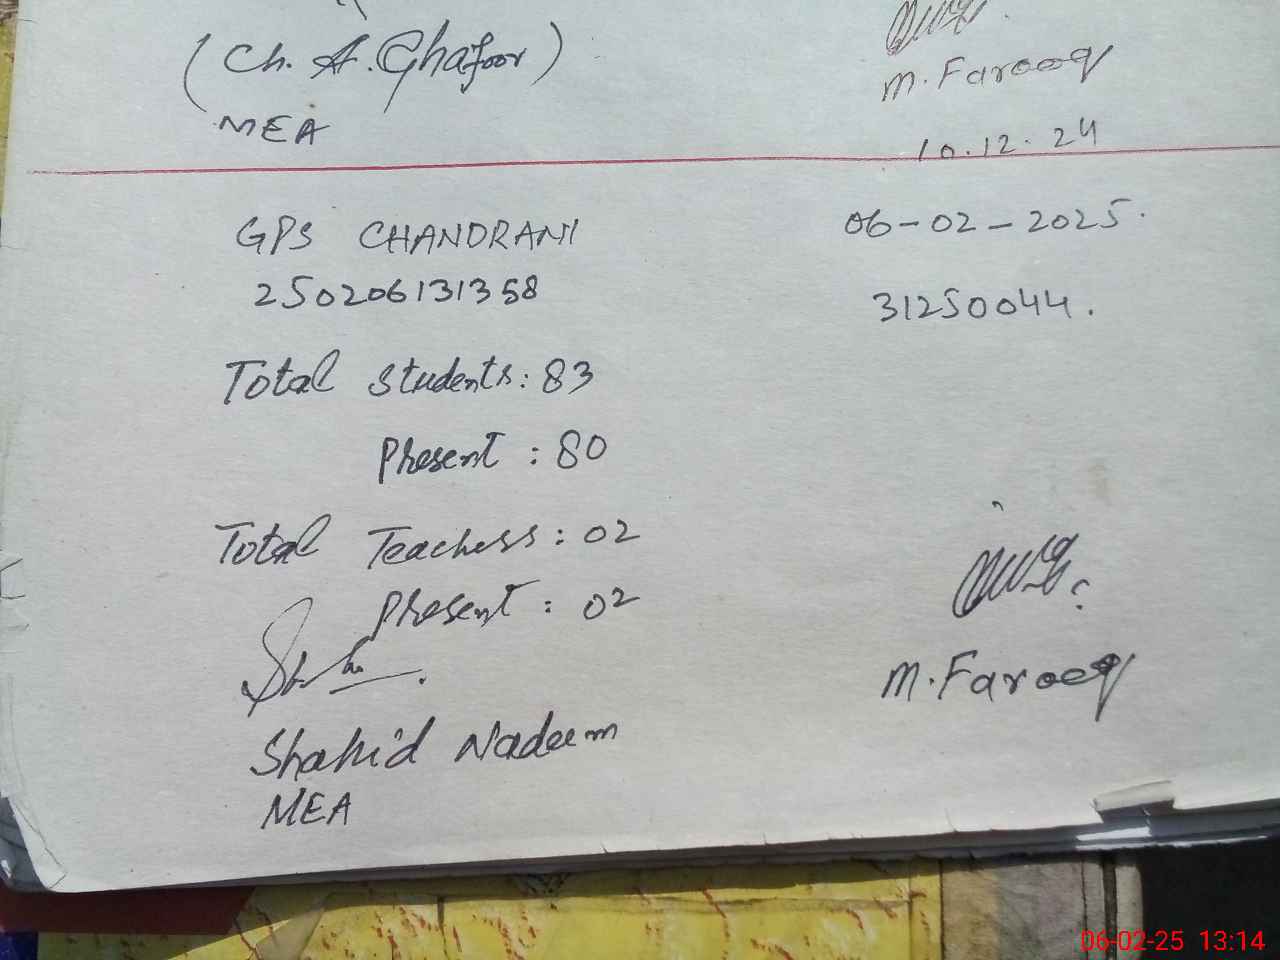 (Ch. A. Ghafoor)
M. Farooq
MEA
10.12.24
GPS CHANDRANI
06-02-2025.
250206131358
31250044.
Total Students: 83
Present : 80
Total Teachers : 02
Present : 02
M. Farooq
Shahid Nadeem
MEA
06-02-25 13:14